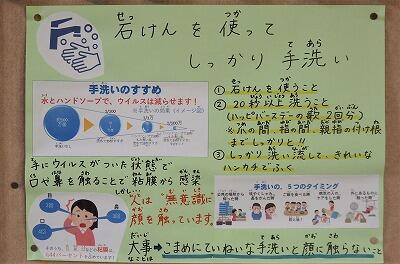 石けんを使って
しっかり手洗い
手洗いのすすめ
水とハンドソープで、ウイルスは減らせます!
手にウイルスがついた状態で
口や鼻を触ることで粘膜から感染
人は"無意識に"
顔を触っています。
① 石けんを使うこと
② 20秒以上洗うこと
(ハッピバースデーの歌 2回分)
※爪の間、指の間、親指の付け根
までしっかりと!!
③ しっかり洗い流して、きれいな
ハンカチでふく
手洗いの、5つのタイミング
大事なことは
➡こまめにていねいな手洗いと顔に触らないこと